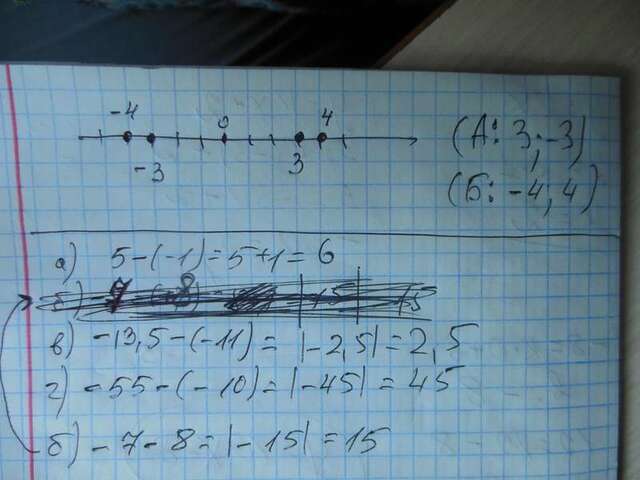 -4 0 4
-3 3
(А: 3; -3)
(Б: -4; 4)
а) 5-(-1)=5+1=6
в) -13,5-(-11)=|-2,5|=2,5
г) -55-(-10)=|-45|=45
б) -7-8=|-15|=15